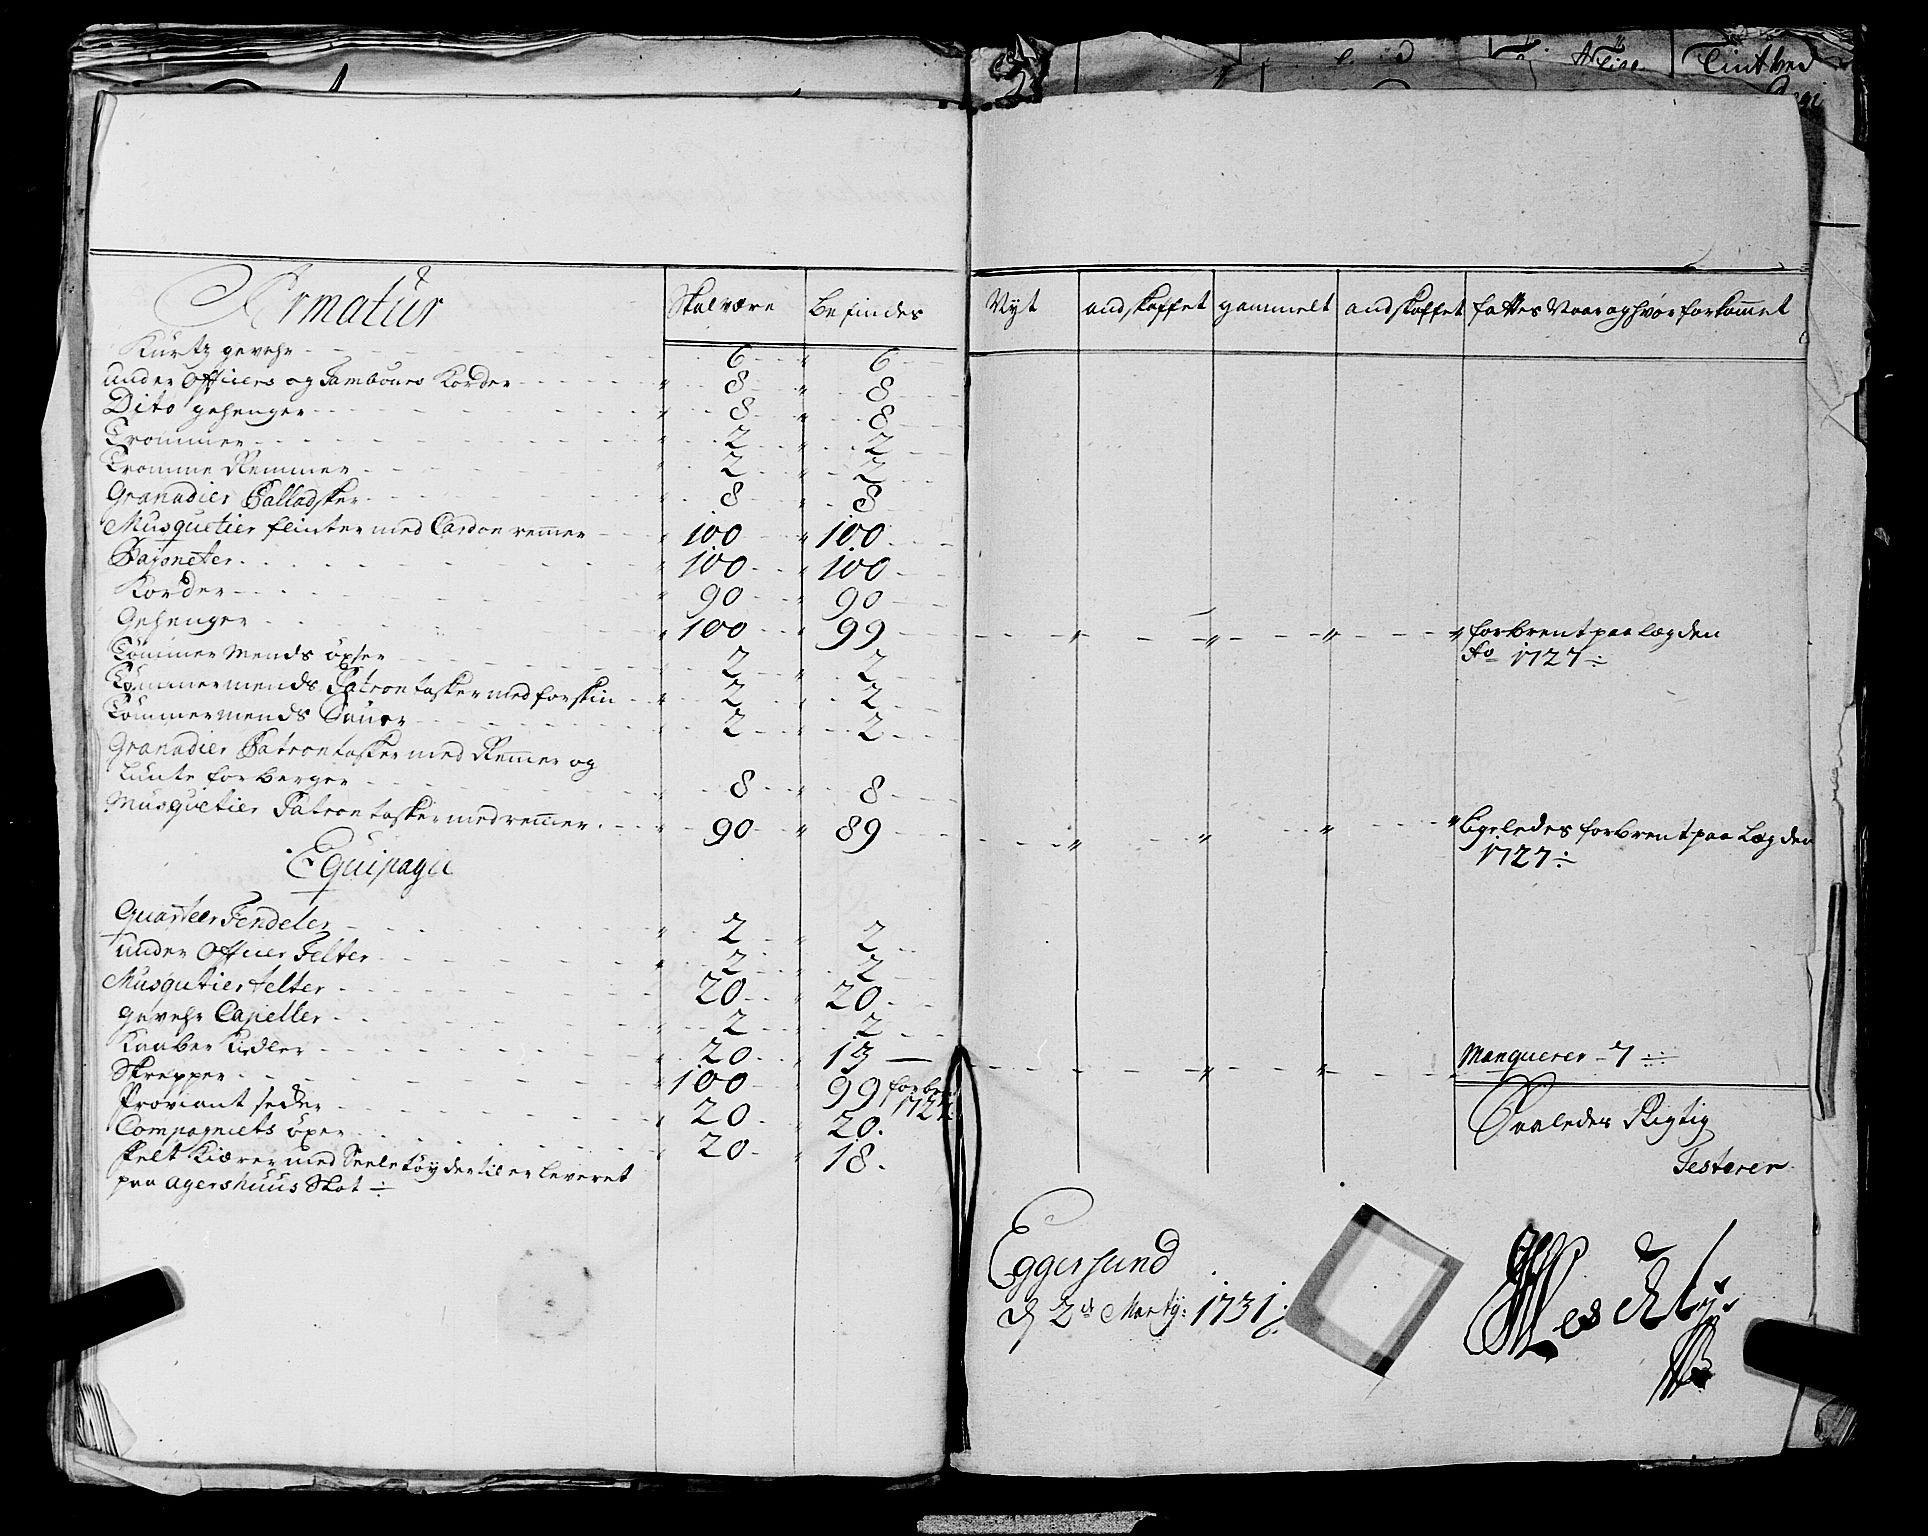 Armatur Skal være Befindes Nyt andskaffet gammelt andskaffet fattes Naar og hvor forkommet
Kurtz gevehr 6 6
under Officiers og Tambours Korder 8 8
Dito gehenger 8 8
Trommer 2 2
Tromme Remmer 2 2
Granadier Palladsker 8 8
Musquetier flinter med Cardon remer 100 100
Bajoneter 100 100
Korder 90 90
Gehenger 100 99 forbrent paa lægden
Ao 1727
Tømmer Mends øxser 2 2
Tømmermends Patrontasker med forskin 2 2
Tømmermends Sauer 2 2
Granadier Patrontasker med Remer og
Lunte forberger 8 8
Musquetier Patron tasker med remer 90 89 ligeledes forbrent paa Lægden
1727
Equipagie
Quarteer Fendeler 2 2
under Officier Telter 2 2
Musqutier telter 20 20
gevehr Capeller 2 2
Kaaber Kiedler 20 13 Manquerer 7
Skrepper 100 99 forbr:
1727
Proviant seder 20 20
Compagniets øxer 20 18
felt Kiærer med Seeletøy dertil er leveret
paa Agershuus Slot
Saaledes Rigtig
Testerer
Eggersund
d 2 Marty: 1731